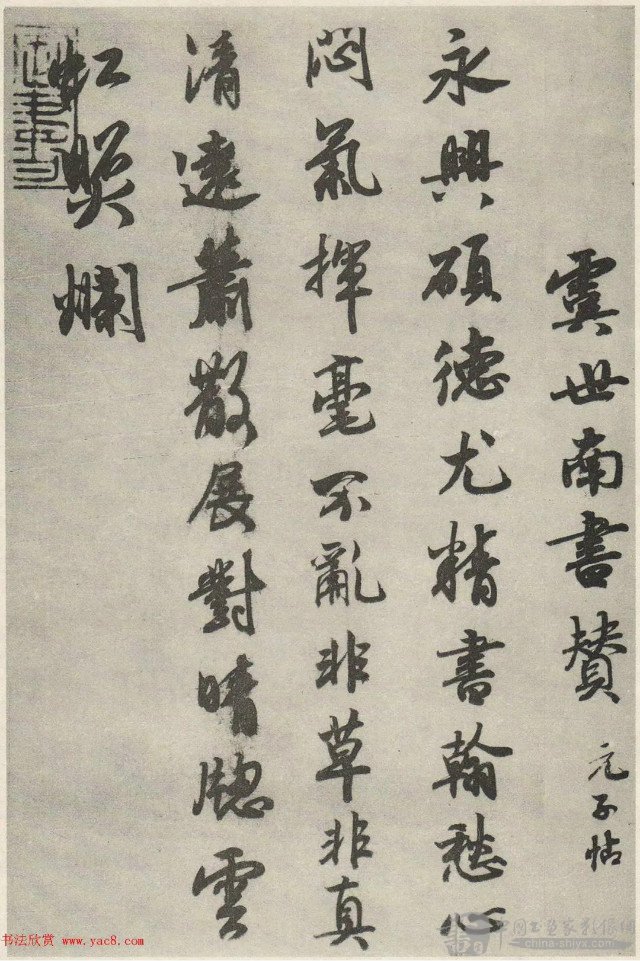 虞世南書贊 元子帖
永興碩德尤精書翰愁心
悶氣揮毫不亂非草非真
清遠蕭散展對晴牕雲
虹照爛
书法欣赏 www.yac8.com
china-shiyx.com